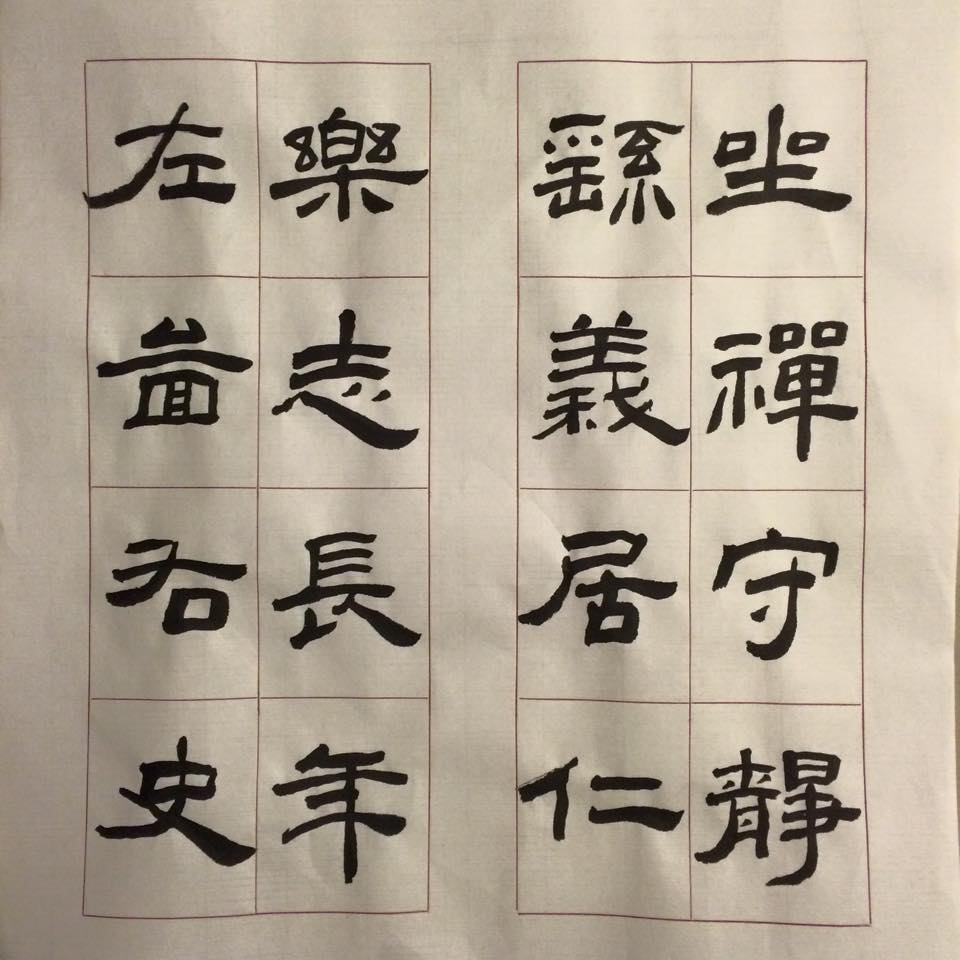 坐禪守靜
繇義居仁
樂志長年
左圖右史